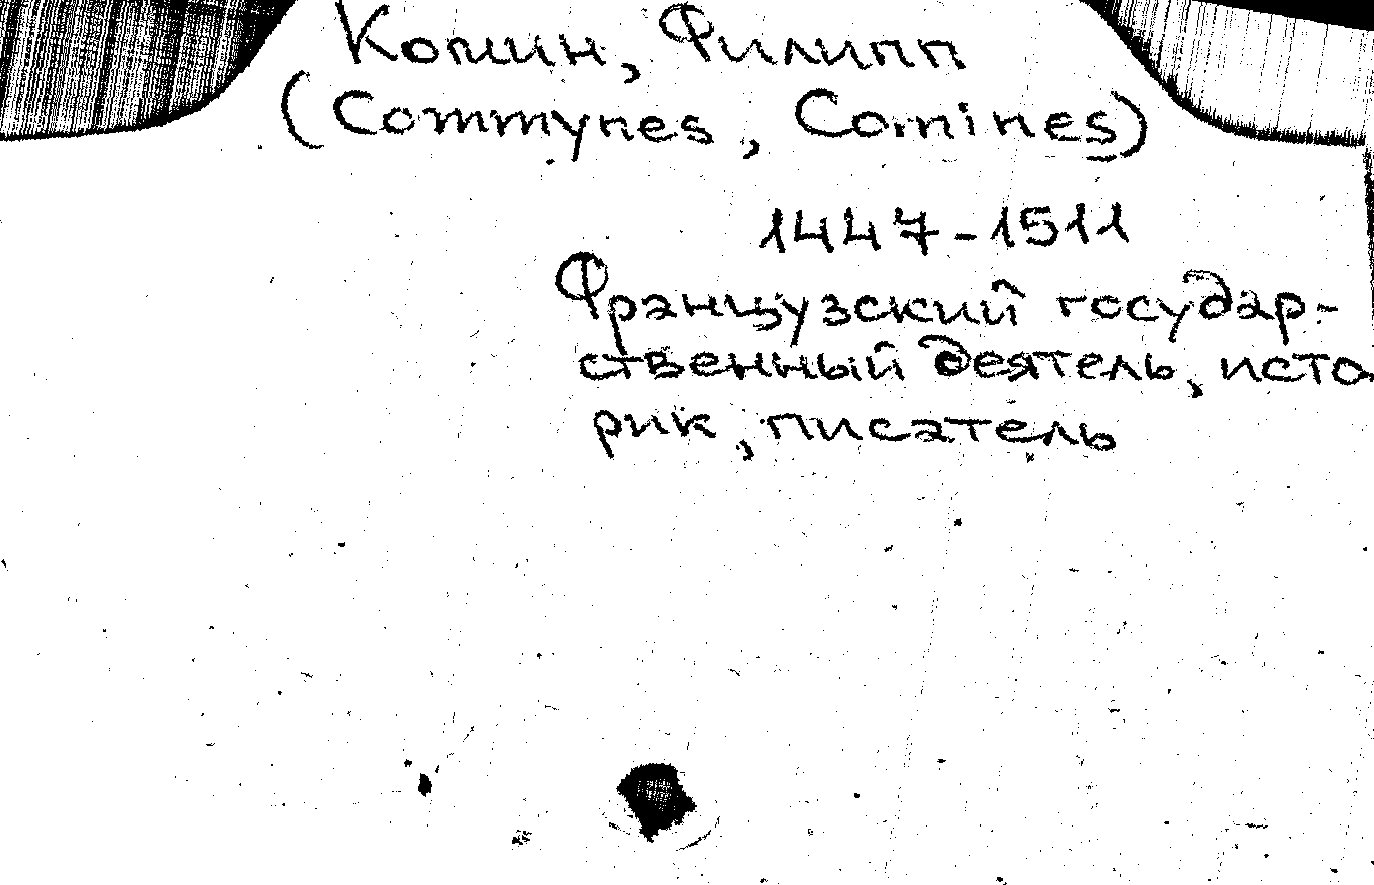 Комин, Филипп
(Commynes, Comines)
1447-1511
Французский государ-
ственный деятель, исто
рик, писатель